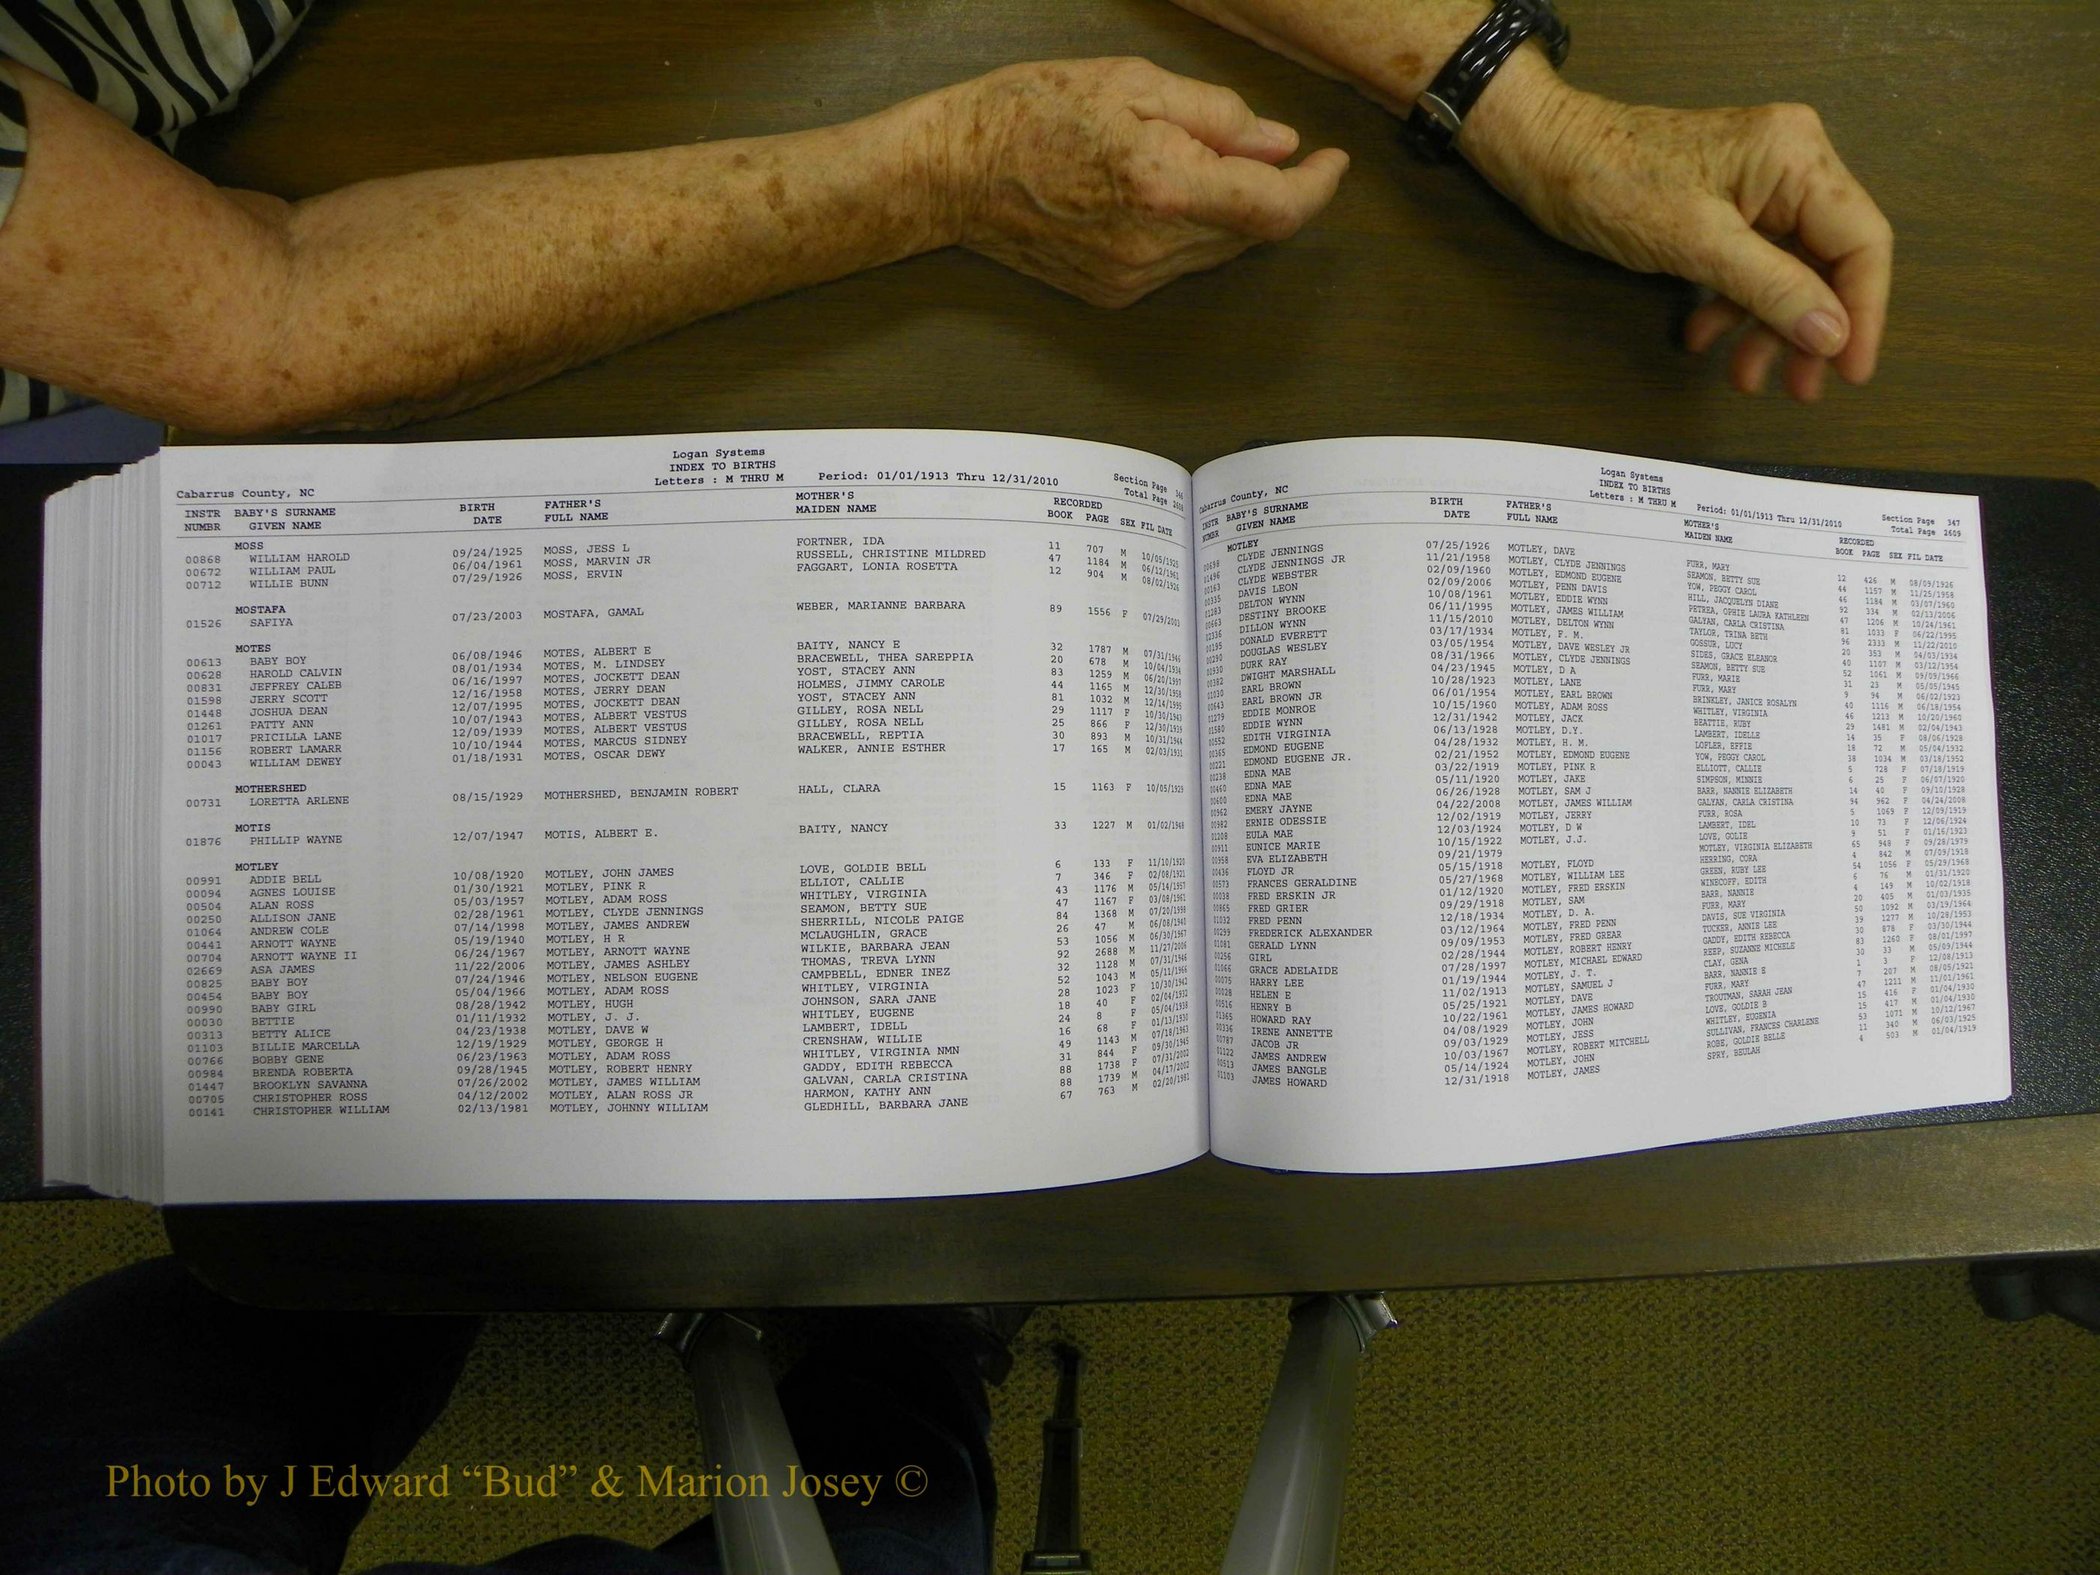 Logan Systems
INDEX TO BIRTHS
Cabarrus County, NC Letters : M THRU M Period: 01/01/1913 Thru 12/31/2010 Section Page 346
Total Page 2608
INSTR BABY'S SURNAME BIRTH FATHER'S MOTHER'S RECORDED
NUMBR GIVEN NAME DATE FULL NAME MAIDEN NAME BOOK PAGE SEX FIL DATE
MOSS
00868 WILLIAM HAROLD 09/24/1925 MOSS, JESS L FORTNER, IDA 11 707 M 10/05/1925
00672 WILLIAM PAUL 06/04/1961 MOSS, MARVIN JR RUSSELL, CHRISTINE MILDRED 47 1184 M 06/12/1961
00712 WILLIE BUNN 07/29/1926 MOSS, ERVIN FAGGART, LONIA ROSETTA 12 904 M 08/02/1926
MOSTAFA
01526 SAFIYA 07/23/2003 MOSTAFA, GAMAL WEBER, MARIANNE BARBARA 89 1556 F 07/29/2003
MOTES
00613 BABY BOY 06/08/1946 MOTES, ALBERT E BAITY, NANCY E 32 1787 M 07/31/1946
00628 HAROLD CALVIN 08/01/1934 MOTES, M. LINDSEY BRACEWELL, THEA SAREPPIA 20 678 M 10/04/1934
00831 JEFFREY CALEB 06/16/1997 MOTES, JOCKETT DEAN YOST, STACEY ANN 83 1259 M 06/20/1997
01598 JERRY SCOTT 12/16/1958 MOTES, JERRY DEAN HOLMES, JIMMY CAROLE 44 1165 M 12/30/1958
01448 JOSHUA DEAN 12/07/1995 MOTES, JOCKETT DEAN YOST, STACEY ANN 81 1032 M 12/14/1995
01261 PATTY ANN 10/07/1943 MOTES, ALBERT VESTUS GILLEY, ROSA NELL 29 1117 F 10/30/1943
01017 PRICILLA LANE 12/09/1939 MOTES, ALBERT VESTUS GILLEY, ROSA NELL 25 866 F 12/30/1939
01156 ROBERT LAMARR 10/10/1944 MOTES, MARCUS SIDNEY BRACEWELL, REPTIA 30 893 M 10/31/1944
00043 WILLIAM DEWEY 01/18/1931 MOTES, OSCAR DEWY WALKER, ANNIE ESTHER 17 165 M 02/03/1931
MOTHERSHED
00731 LORETTA ARLENE 08/15/1929 MOTHERSHED, BENJAMIN ROBERT HALL, CLARA 15 1163 F 10/05/1929
MOTIS
01876 PHILLIP WAYNE 12/07/1947 MOTIS, ALBERT E. BAITY, NANCY 33 1227 M 01/02/1948
MOTLEY
00991 ADDIE BELL 10/08/1920 MOTLEY, JOHN JAMES LOVE, GOLDIE BELL 6 133 F 11/10/1920
00094 AGNES LOUISE 01/30/1921 MOTLEY, PINK R ELLIOT, CALLIE 7 346 F 02/08/1921
00504 ALAN ROSS 05/03/1957 MOTLEY, ADAM ROSS WHITLEY, VIRGINIA 43 1176 M 05/14/1957
00250 ALLISON JANE 02/28/1961 MOTLEY, CLYDE JENNINGS SEAMON, BETTY SUE 47 1167 F 03/08/1961
01064 ANDREW COLE 07/14/1998 MOTLEY, JAMES ANDREW SHERRILL, NICOLE PAIGE 84 1368 M 07/20/1998
00441 ARNOTT WAYNE 05/19/1940 MOTLEY, H R MCLAUGHLIN, GRACE 26 47 M 06/08/1940
00704 ARNOTT WAYNE II 06/24/1967 MOTLEY, ARNOTT WAYNE WILKIE, BARBARA JEAN 53 1056 M 06/30/1967
02669 ASA JAMES 11/22/2006 MOTLEY, JAMES ASHLEY THOMAS, TREVA LYNN 92 2688 M 11/27/2006
00825 BABY BOY 07/24/1946 MOTLEY, NELSON EUGENE CAMPBELL, EDNER INEZ 32 1128 M 07/31/1946
00454 BABY BOY 05/04/1966 MOTLEY, ADAM ROSS WHITLEY, VIRGINIA 52 1043 M 05/11/1966
00990 BABY GIRL 08/28/1942 MOTLEY, HUGH JOHNSON, SARA JANE 28 1023 F 10/30/1942
00030 BETTIE 01/11/1932 MOTLEY, J. J. WHITLEY, EUGENE 18 40 F 02/04/1932
00313 BETTY ALICE 04/23/1938 MOTLEY, DAVE W LAMBERT, IDELL 24 8 F 05/04/1938
01103 BILLIE MARCELLA 12/19/1929 MOTLEY, GEORGE H CRENSHAW, WILLIE 16 68 F 01/13/1930
00766 BOBBY GENE 06/23/1963 MOTLEY, ADAM ROSS WHITLEY, VIRGINIA NMN 49 1143 M 07/18/1963
00984 BRENDA ROBERTA 09/28/1945 MOTLEY, ROBERT HENRY GADDY, EDITH REBECCA 31 844 F 09/30/1945
01447 BROOKLYN SAVANNA 07/26/2002 MOTLEY, JAMES WILLIAM GALVAN, CARLA CRISTINA 88 1738 F 07/31/2002
00705 CHRISTOPHER ROSS 04/12/2002 MOTLEY, ALAN ROSS JR HARMON, KATHY ANN 88 1739 M 04/17/2002
00141 CHRISTOPHER WILLIAM 02/13/1981 MOTLEY, JOHNNY WILLIAM GLEDHILL, BARBARA JANE 67 763 M 02/20/1981
Logan Systems
INDEX TO BIRTHS
Cabarrus County, NC Letters : M THRU M Period: 01/01/1913 Thru 12/31/2010 Section Page 347
Total Page 2609
INSTR BABY'S SURNAME BIRTH FATHER'S MOTHER'S RECORDED
NUMBR GIVEN NAME DATE FULL NAME MAIDEN NAME BOOK PAGE SEX FIL DATE
MOTLEY
00698 CLYDE JENNINGS 07/25/1926 MOTLEY, DAVE FURR, MARY 12 426 M 08/09/1926
01496 CLYDE JENNINGS JR 11/21/1958 MOTLEY, CLYDE JENNINGS SEAMON, BETTY SUE 44 1157 M 11/25/1958
00163 CLYDE WEBSTER 02/09/1960 MOTLEY, EDMOND EUGENE YOW, PEGGY CAROL 46 1184 M 03/07/1960
00335 DAVIS LEON 02/09/2006 MOTLEY, PENN DAVIS HILL, JACQUELYN DIANE 92 334 M 02/13/2006
01283 DELTON WYNN 10/08/1961 MOTLEY, EDDIE WYNN PETREA, OPHIE LAURA KATHLEEN 47 1206 M 10/24/1961
00663 DESTINY BROOKE 06/11/1995 MOTLEY, JAMES WILLIAM GALYAN, CARLA CRISTINA 81 1033 F 06/22/1995
02336 DILLON WYNN 11/15/2010 MOTLEY, DELTON WYNN TAYLOR, TRINA BETH 96 2333 M 11/22/2010
00195 DONALD EVERETT 03/17/1934 MOTLEY, F. M. GOSSUR, LUCY 20 353 M 04/03/1934
00290 DOUGLAS WESLEY 03/05/1954 MOTLEY, DAVE WESLEY JR SIDES, GRACE ELEANOR 40 1107 M 03/12/1954
00930 DURK RAY 08/31/1966 MOTLEY, CLYDE JENNINGS SEAMON, BETTY SUE 52 1061 M 09/09/1966
00382 DWIGHT MARSHALL 04/23/1945 MOTLEY, D A FURR, MARIE 31 23 M 05/05/1945
01030 EARL BROWN 10/28/1923 MOTLEY, LANE FURR, MARY 9 94 M 06/02/1923
00643 EARL BROWN JR 06/01/1954 MOTLEY, EARL BROWN BRINKLEY, JANICE ROSALYN 40 1116 M 06/18/1954
01279 EDDIE MONROE 10/15/1960 MOTLEY, ADAM ROSS WHITLEY, VIRGINIA 46 1213 M 10/20/1960
01580 EDDIE WYNN 12/31/1942 MOTLEY, JACK BEATTIE, RUBY 29 1481 M 02/04/1943
00552 EDITH VIRGINIA 06/13/1928 MOTLEY, D.Y. LAMBERT, IDELLE 14 35 F 08/06/1928
00365 EDMOND EUGENE 04/28/1932 MOTLEY, H. M. LOFLER, EFFIE 18 72 M 05/04/1932
00221 EDMOND EUGENE JR. 02/21/1952 MOTLEY, EDMOND EUGENE YOW, PEGGY CAROL 38 1034 M 03/18/1952
00238 EDNA MAE 03/22/1919 MOTLEY, PINK R ELLIOTT, CALLIE 5 728 F 07/18/1919
00460 EDNA MAE 05/11/1920 MOTLEY, JAKE SIMPSON, MINNIE 6 25 F 06/07/1920
00600 EDNA MAE 06/26/1928 MOTLEY, SAM J BARR, NANNIE ELIZABETH 14 40 F 09/10/1928
00962 EMERY JAYNE 04/22/2008 MOTLEY, JAMES WILLIAM GALYAN, CARLA CRISTINA 94 962 F 04/24/2008
00982 ERNIE ODESSIE 12/02/1919 MOTLEY, JERRY FURR, ROSA 5 1069 F 12/09/1919
01208 EULA MAE 12/03/1924 MOTLEY, D W LAMBERT, IDEL 10 73 F 12/06/1924
00911 EUNICE MARIE 10/15/1922 MOTLEY, J.J. LOVE, GOLIE 9 51 F 01/16/1923
00958 EVA ELIZABETH 09/21/1979 MOTLEY, VIRGINIA ELIZABETH 65 948 F 09/28/1979
00436 FLOYD JR 05/15/1918 MOTLEY, FLOYD HERRING, CORA 4 842 M 07/09/1918
00573 FRANCES GERALDINE 05/27/1968 MOTLEY, WILLIAM LEE GREEN, RUBY LEE 54 1056 F 05/29/1968
00038 FRED ERSKIN JR 01/12/1920 MOTLEY, FRED ERSKIN WINECOFF, EDITH 6 76 M 01/31/1920
00865 FRED GRIER 09/29/1918 MOTLEY, SAM BARR, NANNIE 4 149 M 10/02/1918
01032 FRED PENN 12/18/1934 MOTLEY, D. A. FURR, MARY 20 405 M 01/03/1935
00299 FREDERICK ALEXANDER 03/12/1964 MOTLEY, FRED PENN DAVIS, SUE VIRGINIA 50 1092 M 03/19/1964
01081 GERALD LYNN 09/09/1953 MOTLEY, FRED GREAR TUCKER, ANNIE LEE 39 1277 M 10/28/1953
00256 GIRL 02/28/1944 MOTLEY, ROBERT HENRY GADDY, EDITH REBECCA 30 878 F 03/30/1944
01066 GRACE ADELAIDE 07/28/1997 MOTLEY, MICHAEL EDWARD REEP, SUZANNE MICHELE 83 1260 F 08/01/1997
00075 HARRY LEE 01/19/1944 MOTLEY, J. T. CLAY, GENA 30 33 M 05/09/1944
00028 HELEN E 11/02/1913 MOTLEY, SAMUEL J BARR, NANNIE E 1 3 F 12/08/1913
00516 HENRY B 05/25/1921 MOTLEY, DAVE FURR, MARY 7 207 M 08/05/1921
01365 HOWARD RAY 10/22/1961 MOTLEY, JAMES HOWARD TROUTMAN, SARAH JEAN 47 1211 M 11/01/1961
00336 IRENE ANNETTE 04/08/1929 MOTLEY, JOHN LOVE, GOLDIE B 15 416 F 01/04/1930
00787 JACOB JR 09/03/1929 MOTLEY, JESS WHITLEY, EUGENIA 15 417 M 01/04/1930
01122 JAMES ANDREW 10/03/1967 MOTLEY, ROBERT MITCHELL SULLIVAN, FRANCES CHARLENE 53 1071 M 10/12/1967
00513 JAMES BANGLE 05/14/1924 MOTLEY, JOHN ROBE, GOLDIE BELLE 11 340 M 06/03/1925
01103 JAMES HOWARD 12/31/1918 MOTLEY, JAMES SPRY, BEULAH 4 503 M 01/04/1919
Photo by J Edward “Bud” & Marion Josey ©